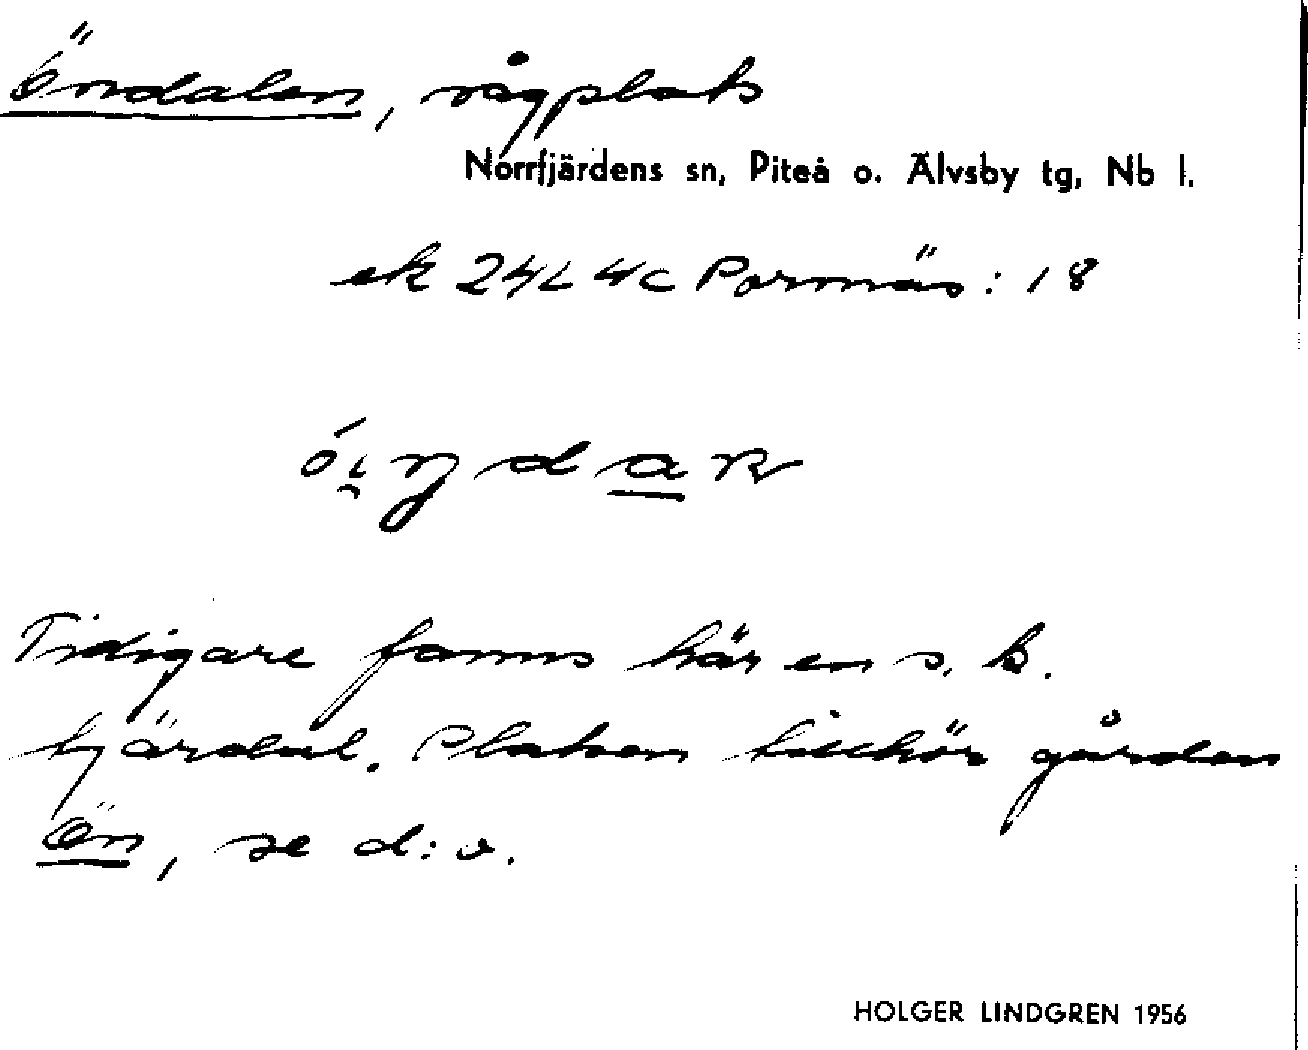 Öndalen, vägplats
Norrfjärdens sn, Piteå o. Älvsby tg, Nb l.
ek 24L 4c Porsnäs: 18
Tidigare fanns här en s. k.
tjärdal. Platsen tillhör gården
Ön, se d:o.
HOLGER LINDGREN 1956